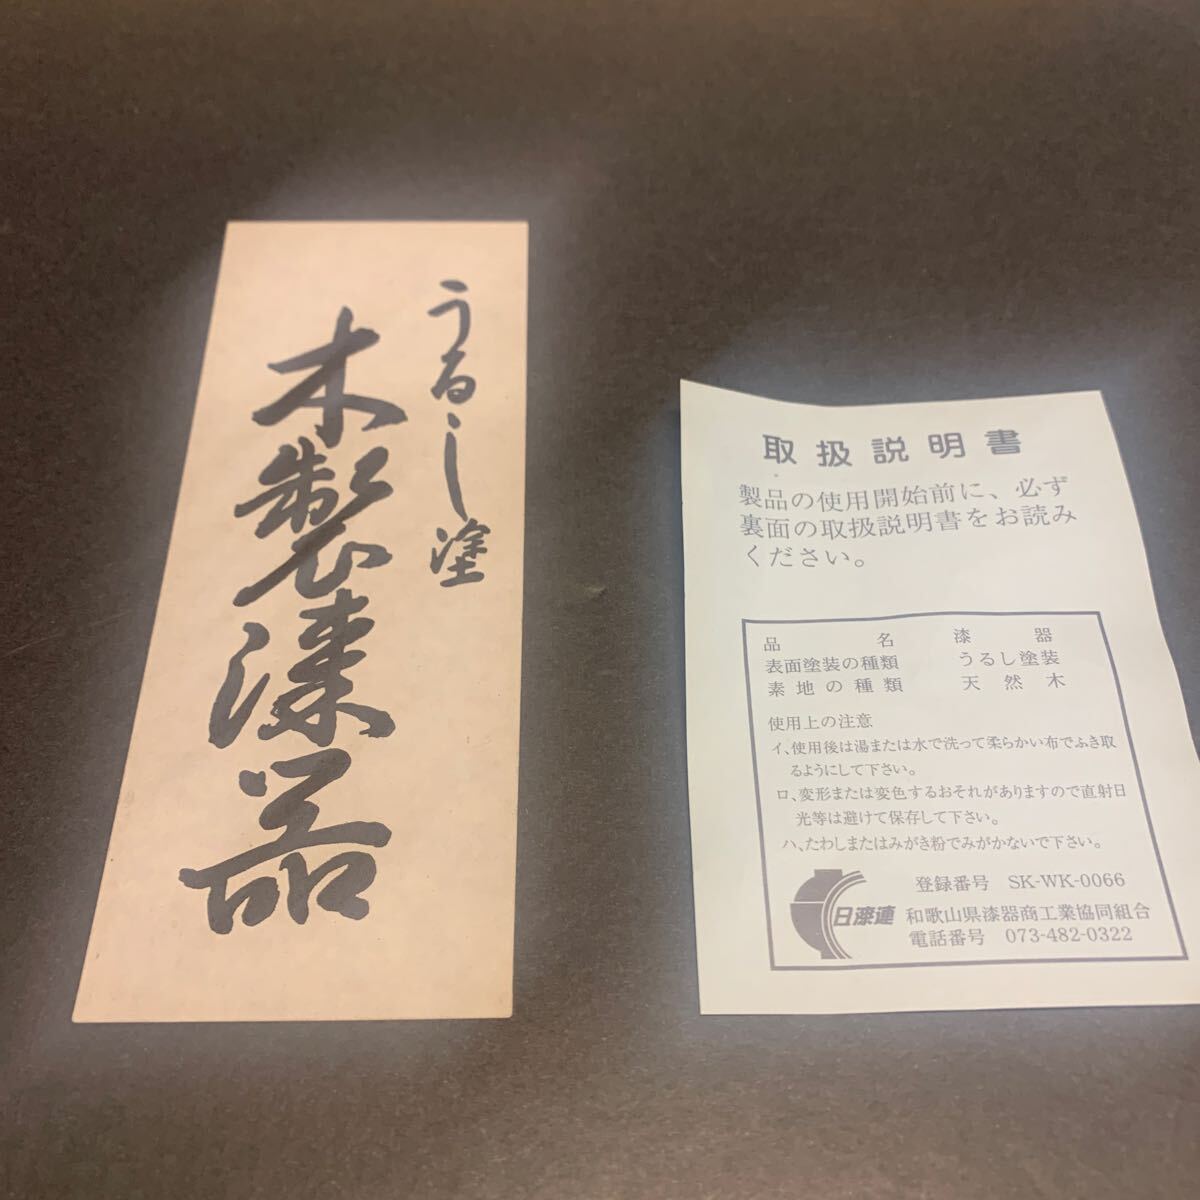 うるし塗
木製漆器
取扱説明書
製品の使用開始前に、必ず
裏面の取扱説明書をお読み
ください。
品名 漆器
表面塗装の種類 うるし塗装
素地の種類 天然木
使用上の注意
イ、使用後は湯または水で洗って柔らかい布でふき取
るようにして下さい。
ロ、変形または変色するおそれがありますので直射日
光等は避けて保存して下さい。
ハ、たわしまたはみがき粉でみがかないで下さい。
登録番号 SK-WK-0066
日漆連 和歌山県漆器商工業協同組合
電話番号 073-482-0322